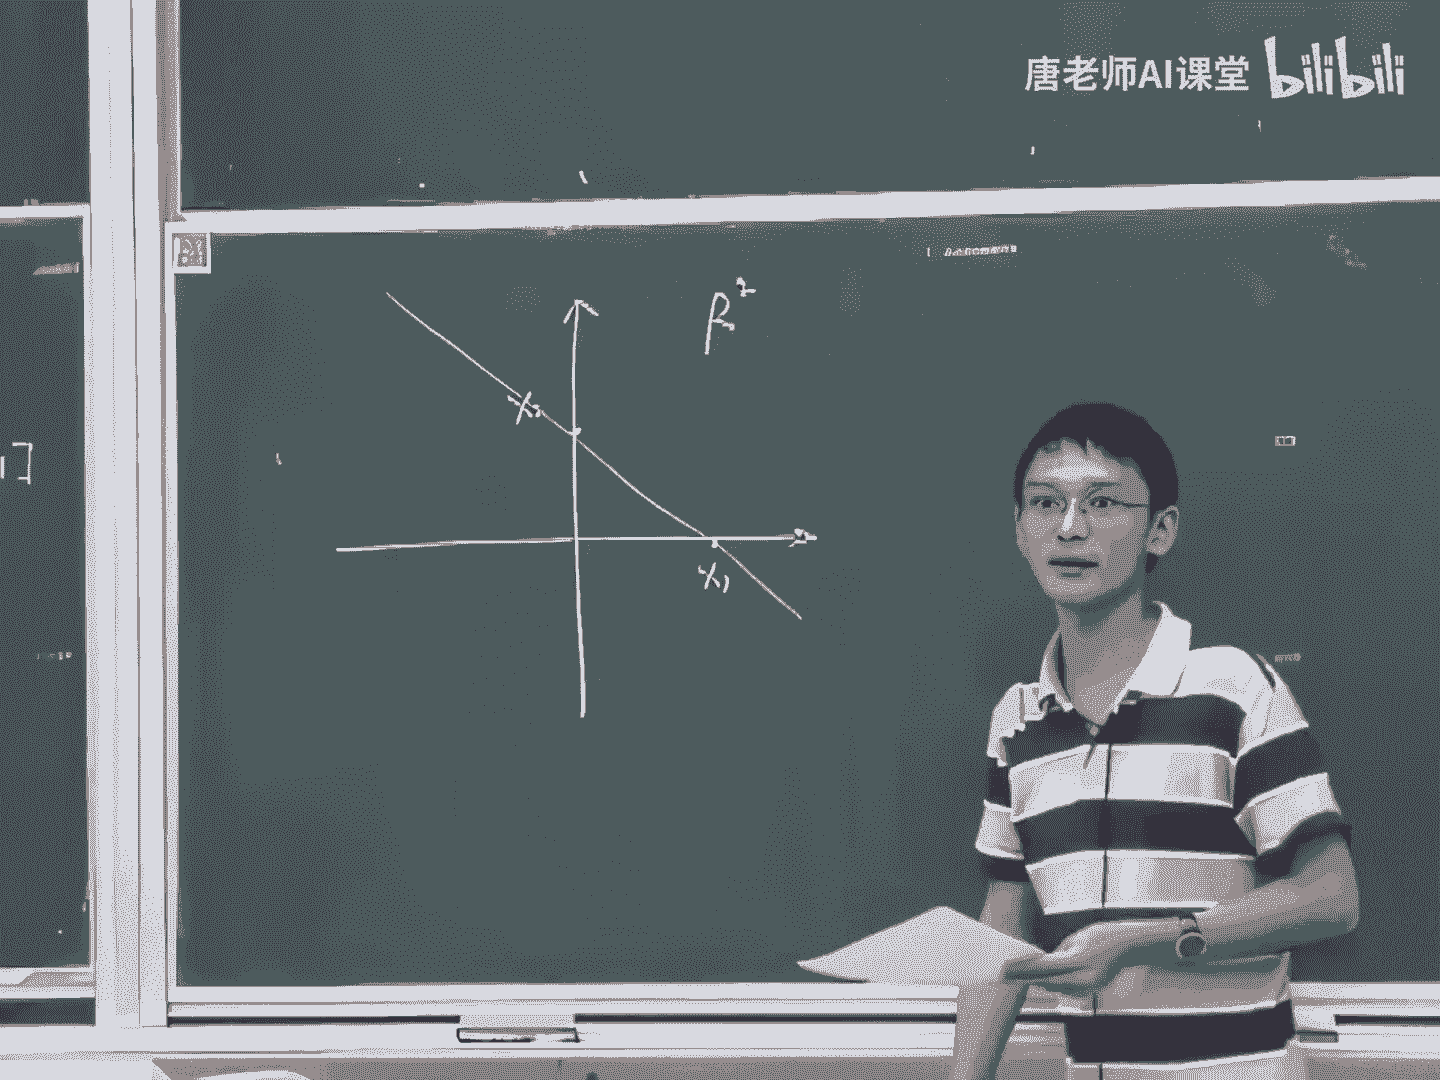 唐老师AI课堂 bilibili
R²
X₂
X₁